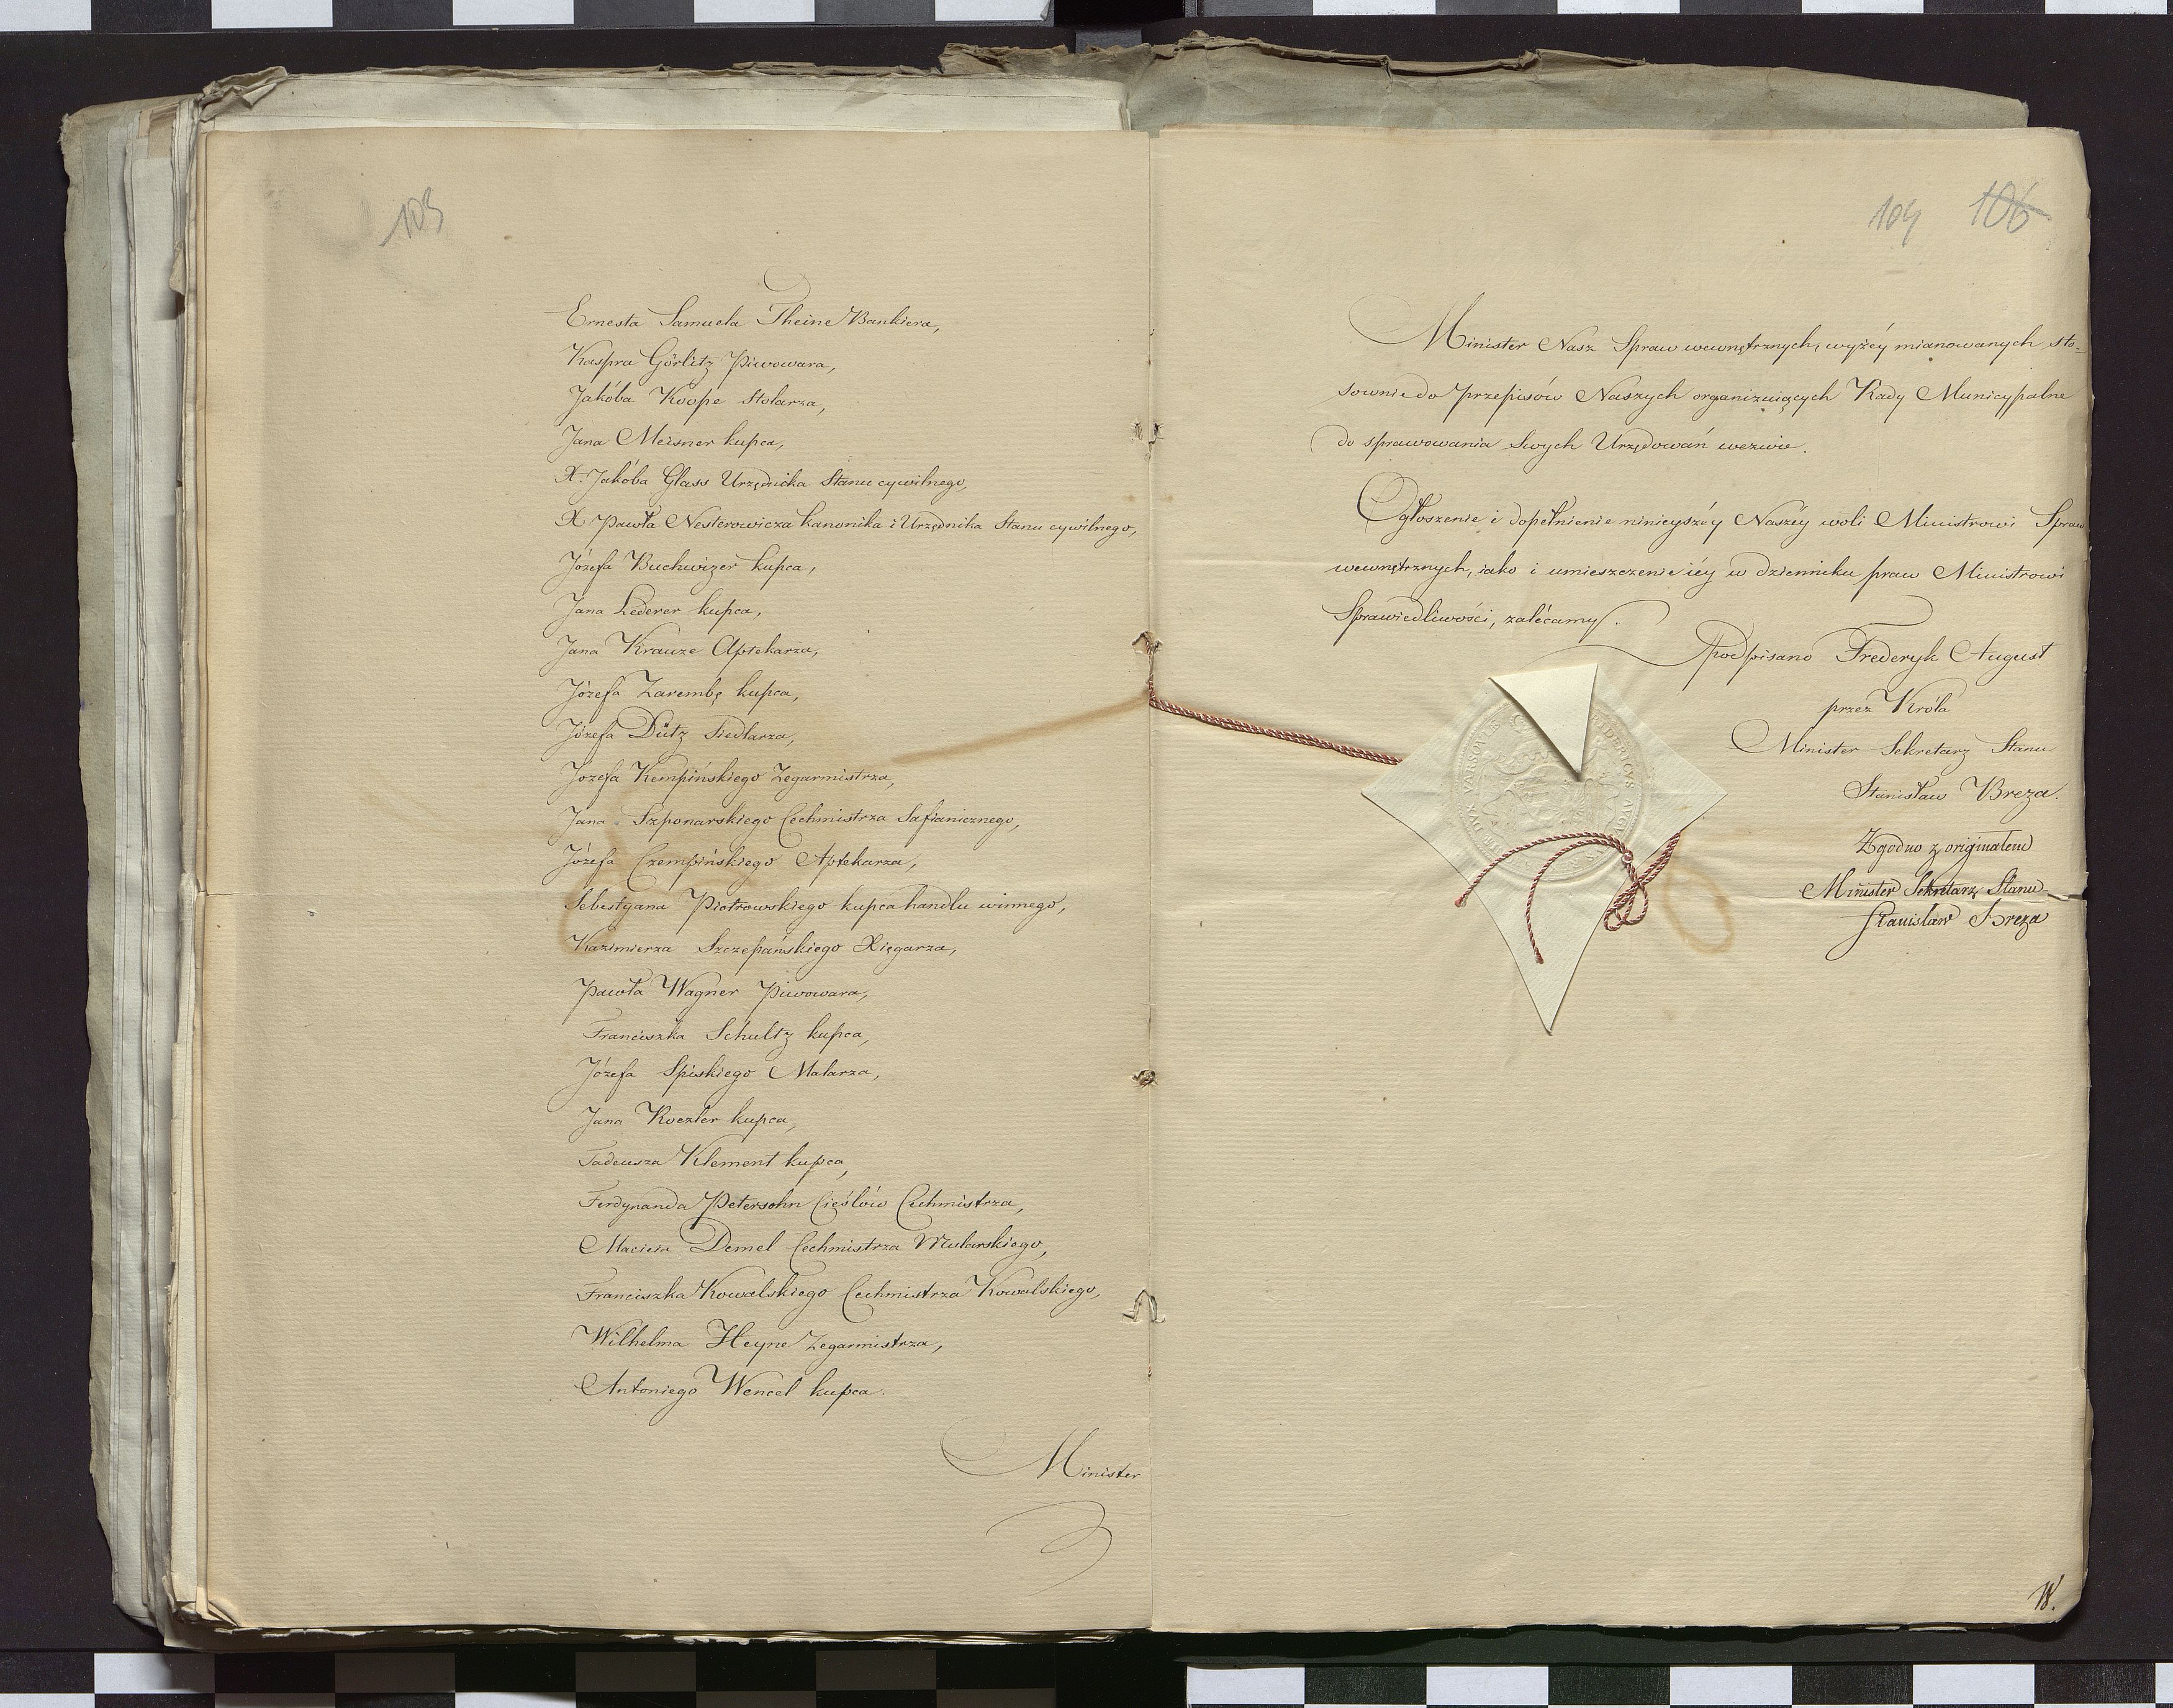 103
Ernesta Samuela Theine Bankiera,
Kaspra Görlitz Piwowara,
Jakóba Koope Stolarza,
Jana Meisner kupca,
X. Jakóba Glass Urzędnika Stanu cywilnego,
X Pawła Nesterowicza kanonika i Urzędnika Stanu cywilnego,
Józefa Buchwizer kupca,
Jana Lederer kupca,
Jana Krauze Aptekarza,
Józefa Zarembę kupca,
Józefa Dütz Siedlarza,
Józefa Kempińskiego Zegarmistrza,
Jana Szponarskiego Cechmistrza Safianicznego,
Józefa Czempińskiego Aptekarza,
Sebestyana Piotrowskiego kupca handlu winnego,
Kazimierza Szczepańskiego Xięgarza,
Pawła Wagner Piwowara,
Franciszka Schultz kupca,
Józefa Spiskiego Malarza,
Jana Roezler kupca,
Tadeusza Klement kupca,
Ferdynanda Petersohn Cieślów Cechmistrza,
Macieia Demel Cechmistrza Mularskiego,
Franciszka Kowalskiego Cechmistrza Kowalskiego,
Wilhelma Heyne Zegarmistrza,
Antoniego Wencel kupca.
Minister
104 106
Minister Nasz Spraw wewnętrznych, wyżéy mianowanych sto=
sownie do przepisów Naszych organizuiących Rady Municypalne
do sprawowania Swych Urzędowań wezwie.
Ogłoszenie i dopełnienie ninieyszéy Naszéy woli Ministrowi Spraw
wewnętrznych, iako i umieszczenie iéy w dzienniku praw Ministrowi
Sprawiedliwości, zalécamy.
Podpisano Frederyk August
przez Króla
Minister Sekretarz Stanu
Stanisław Breza.
Zgodno z originałem
Minister Sekretarz Stanu
Stanisław Breza
DUX VARSOVIÆ
FRIDERICVS AVGV
18.